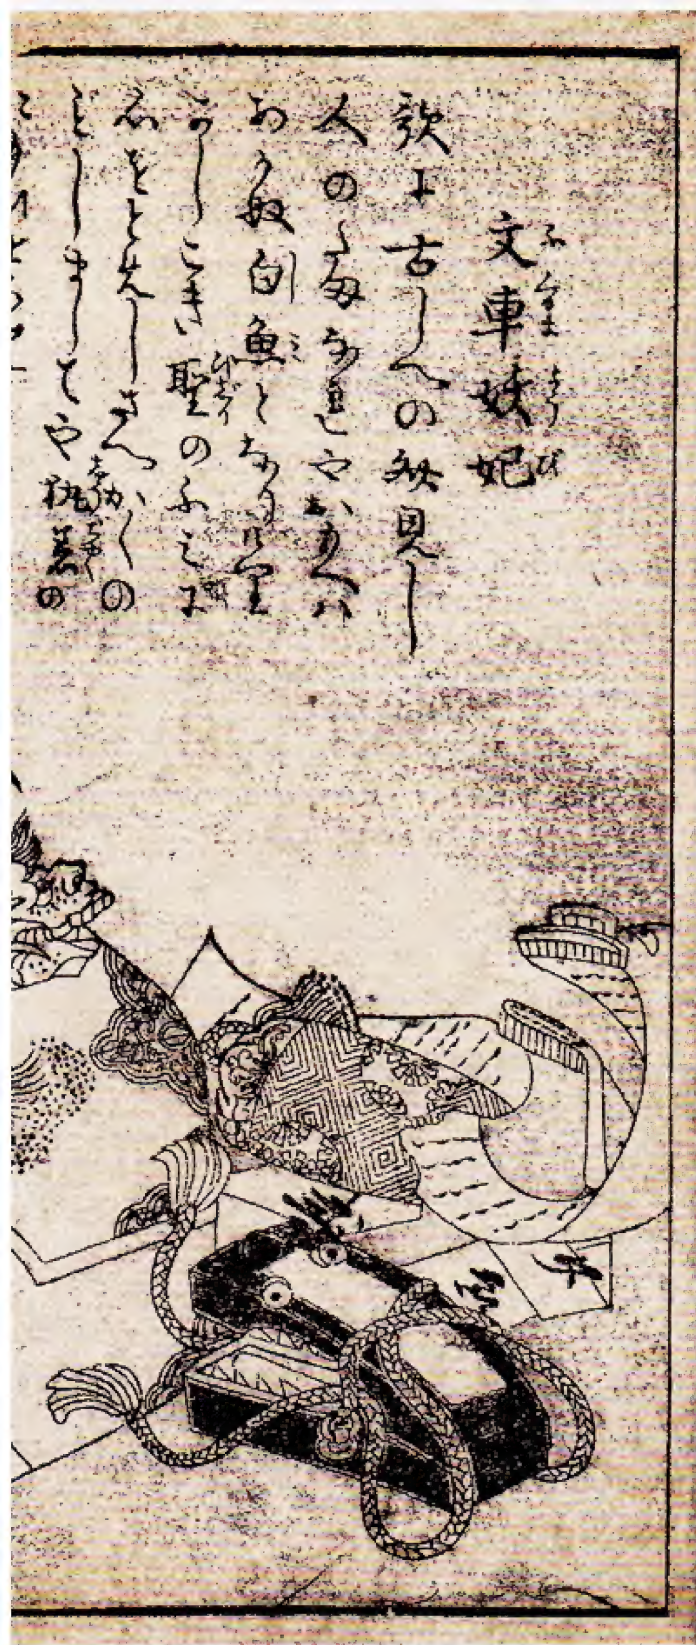 文車妖妃
ふぐるま ようび
歌に古しへの文見し
人のたまなれやおもへハ
あかぬ白魚となりけり
しみ
かしこき聖のふみに
ひじり
心をとめしさへかくの
ごとしましてや執着の